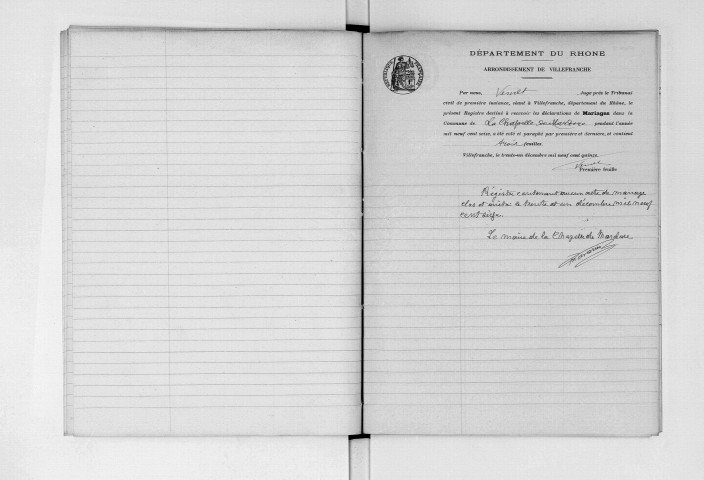 DÉPARTEMENT DU RHONE
ARRONDISSEMENT DE VILLEFRANCHE
Par nous, , Juge près le Tribunal
civil de première instance, séant à Villefranche, département du Rhône, le
présent Registre destiné à recevoir les déclarations de Mariages dans la
Commune de La Chapelle de Mardore pendant l'année
mil neuf cent seize, a été coté et paraphé par première et dernière, et contient
trois feuilles.
Villefranche, le trente-un décembre mil neuf cent quinze.
Première Feuille
Registre contenant aucun acte de mariage
clos et arrêté le trente et un décembre mil neuf
cent seize
Le maire de la Chapelle de Mardore